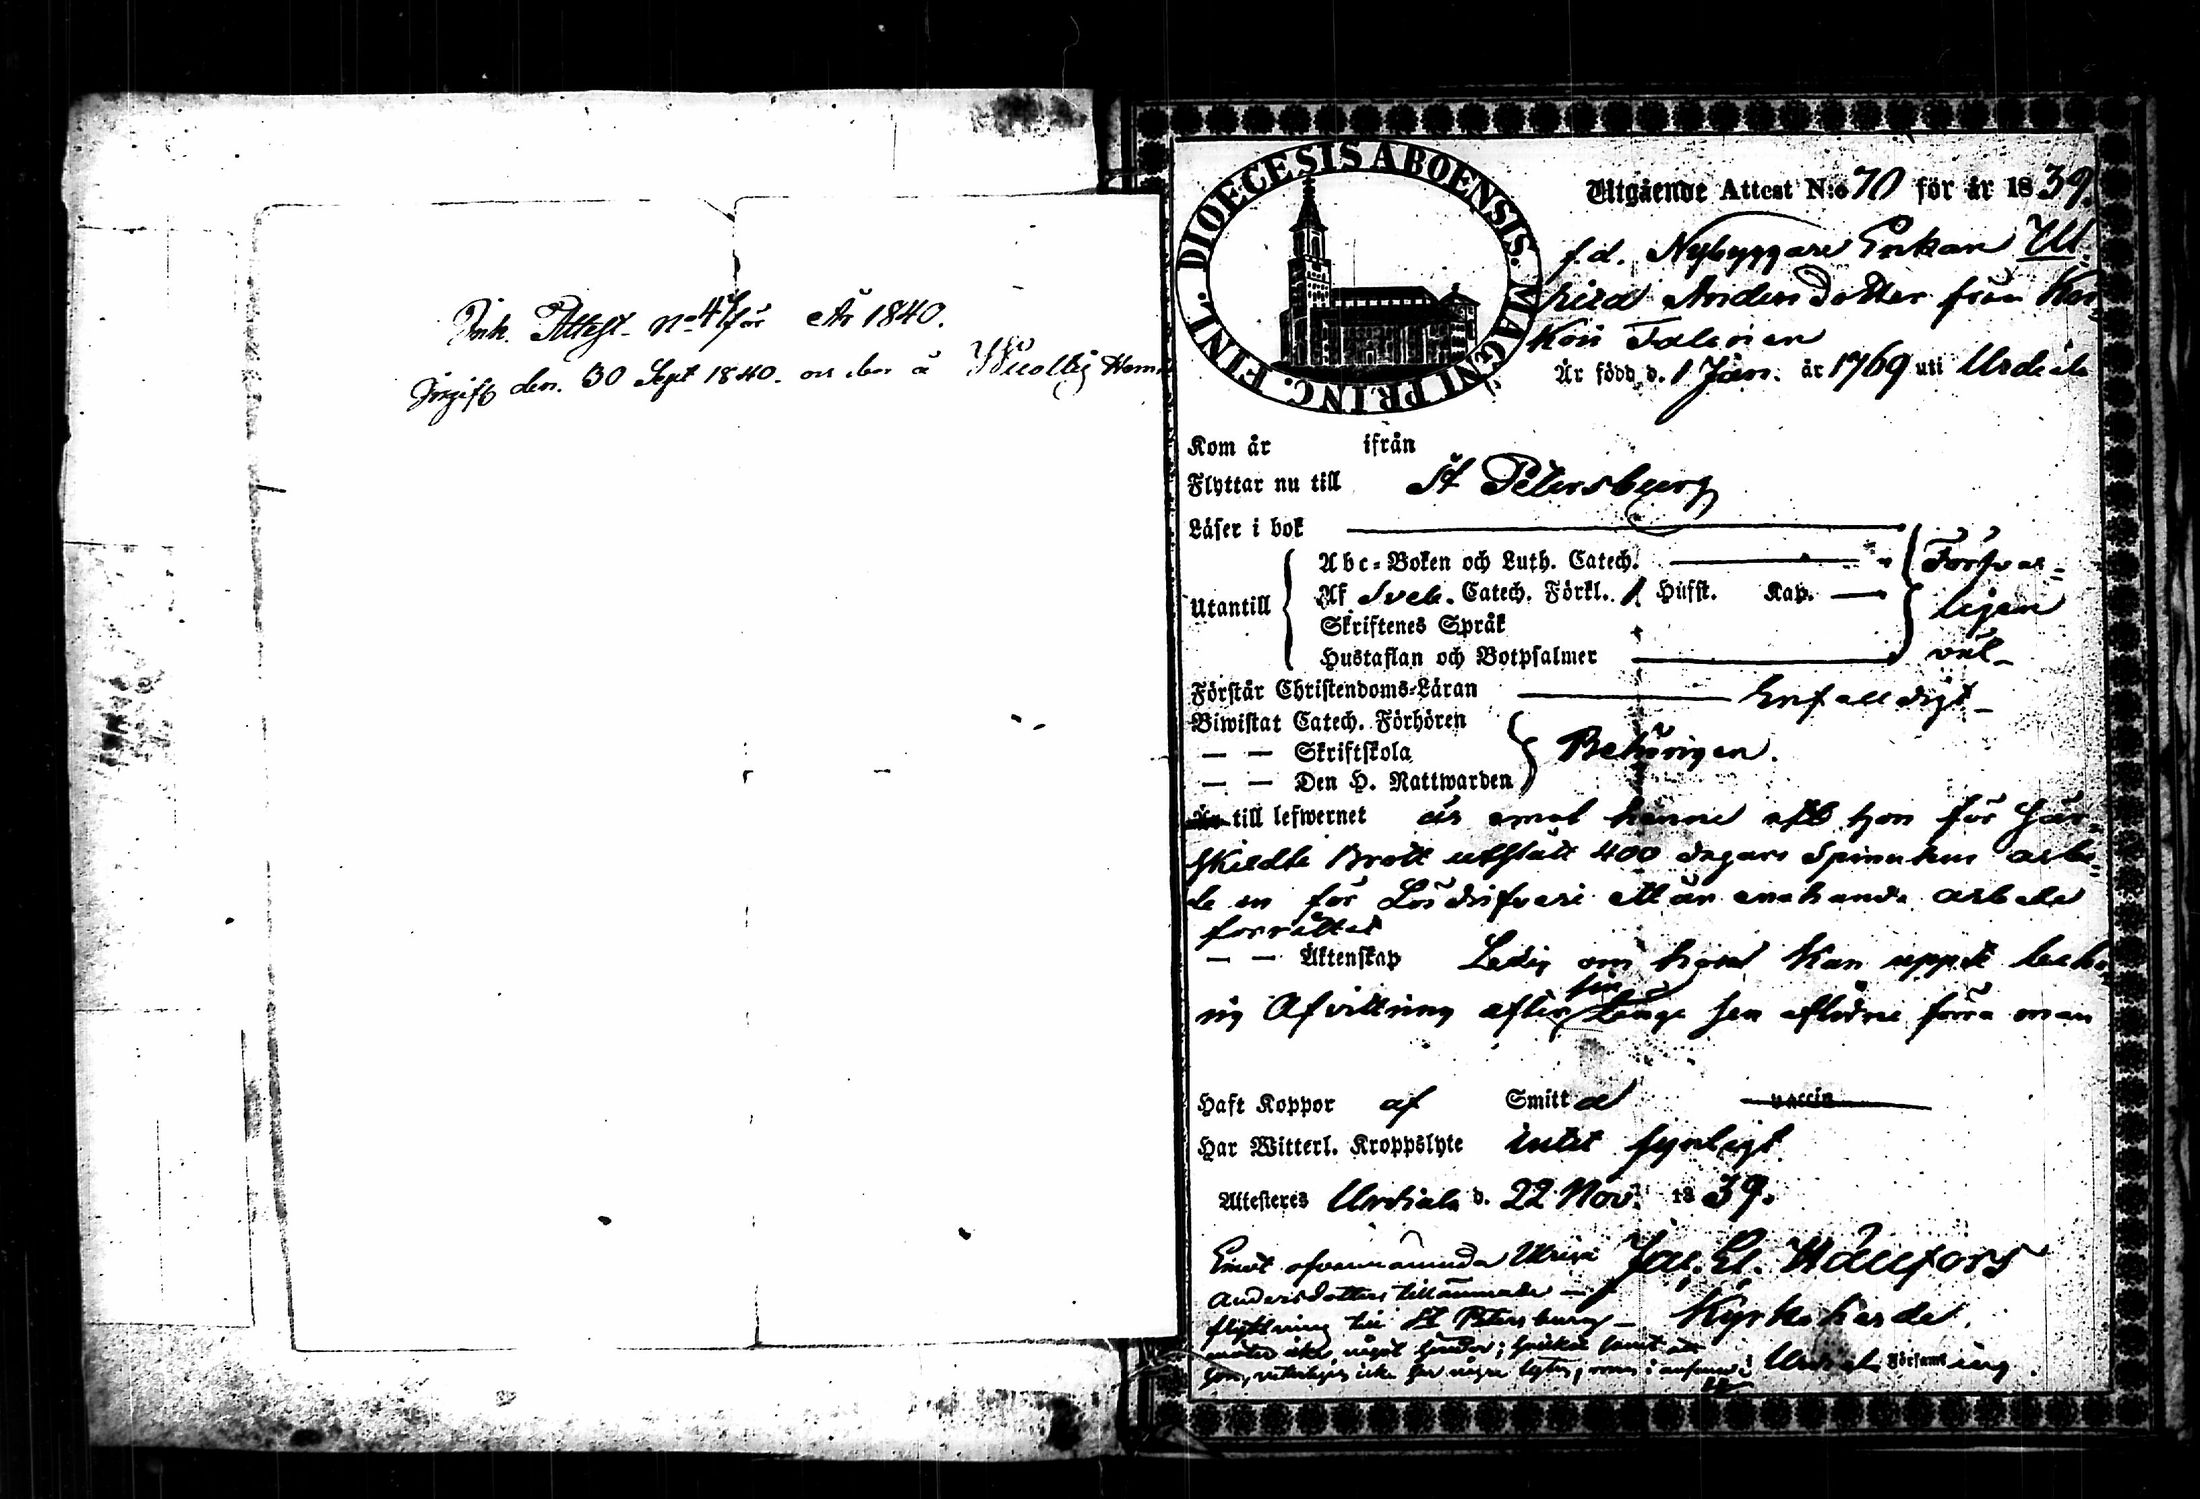 Ink. Attest no 47 för År 1840.
Ingift den. 30 Sept 1840. en den å
DIOECESIS ABOENSIS. MAGNI PRINC. FINL.
Utgående Attest N:o 70 för år 1839.
f.d. Nybyggare Enkan Ul-
rica Andersdotter från
Är född d. 1 Jan. år 1769 uti Urdiala
Kom år ifrån
Flyttar nu till St Petersburg
Läser i bok
Abc-Boken och Luth. Catech. Försvar-
Utantill Af Sveb. Catech. Förkl. Hufst. Kap. ligen
Skriftenes Språk
Hustaflan och Botpsalmer väl
Förstår Christendoms-Läran Enfalldigt
Biwistat Catech. Förhören
— — Skriftskola Behörigen.
— — Den H. Nattwarden
Är till lefwernet är hänne att hon för sär-
skildte Brott utstått 400 dagars Spinnhus arbe-
te en för Lösdrifveri ett år enahanda arbete
förrättat
— — Äktenskap Ledig om hon kan uppte
Afvittring efter sin länge sen aflidne förra man
Haft Koppor af Smitta vaccin
Har Witterl. Kroppslyte intet synligt
Attesteres Urdiala d. 22 Nov. 1839.
Emot ofvannämnda Ulrica
Andersdotters tillämnade
flyttning till St Petersburg
möter icke något hinder;
hon, veterligen icke har några lyten,
Kyrkoherde.
Urdiala Församling